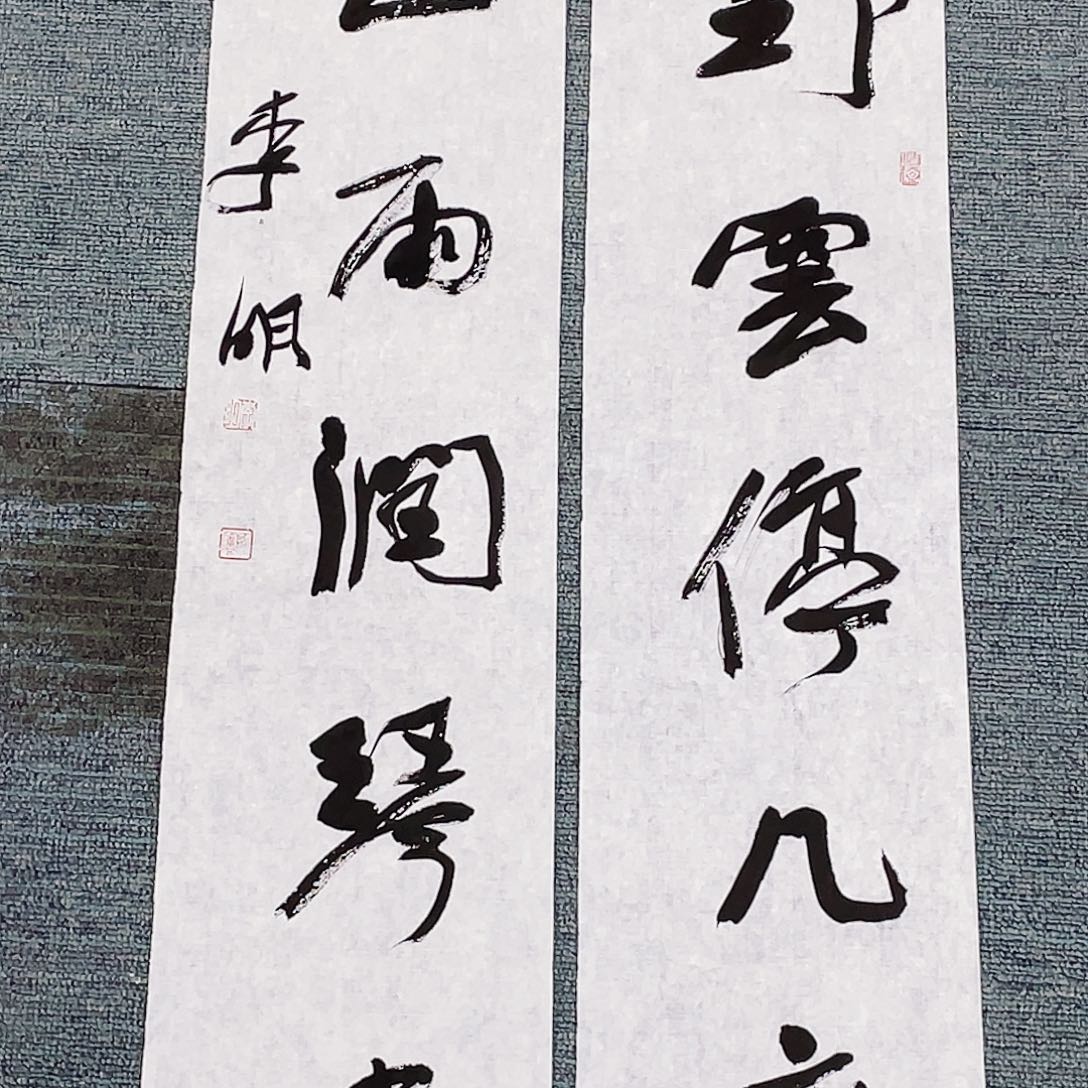 野雲停几
雨潤琴
李明